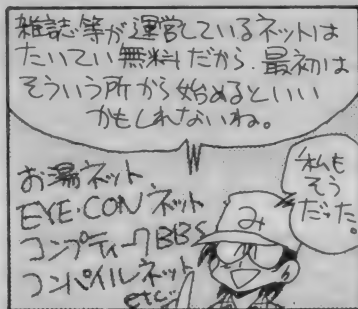 雑誌等が運営しているネットは
たいてい無料だから、最初は
そういう所から始めるといい
かもしれないね。
お湯ネット
EYE・CONネット
コンプティークBBS
コンパイルネット
etc…
私も
そう
だった。
み